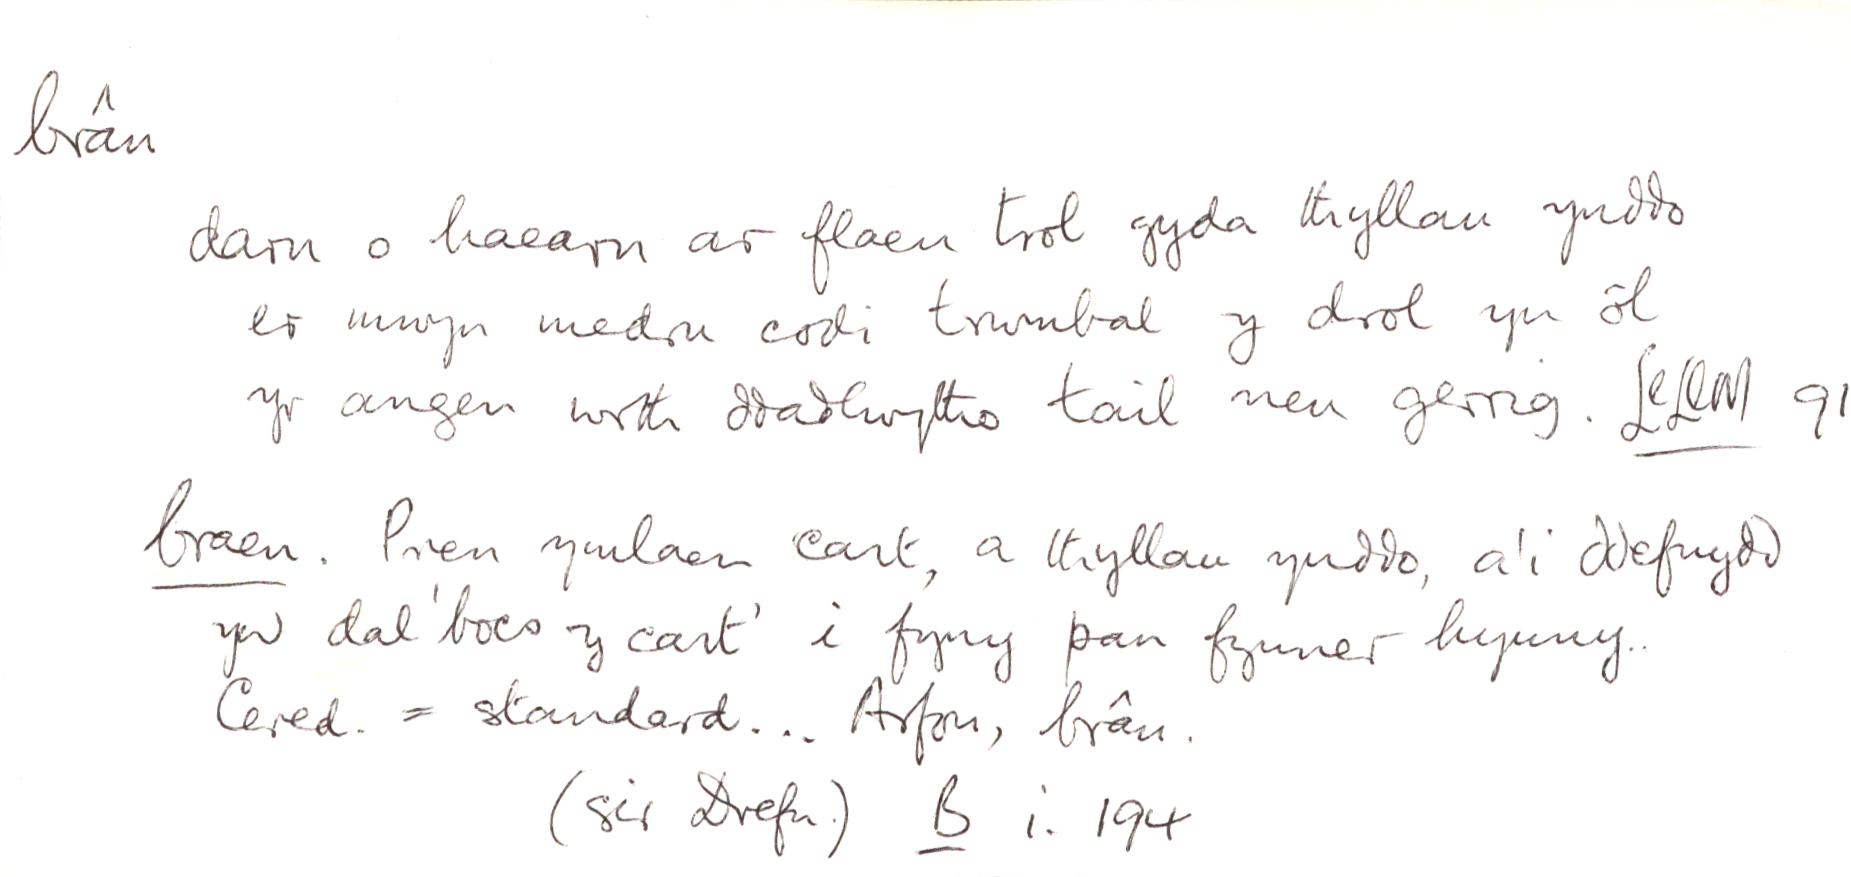 brân
darn o haearn ar flaen trol gyda thyllau ynddo
er mwyn medru codi trwmbal y drol yn ôl
yr angen wrth ddadlwytho tail neu gerrig. 91
braen. Pren ymlaen cart, a thyllau ynddo, a'i ddefnydd
yw dal 'bocs y cart' i fyny pan fynner hynny..
Cered. = standard... Arfon, brân.
(sir Drefn.) B i. 194